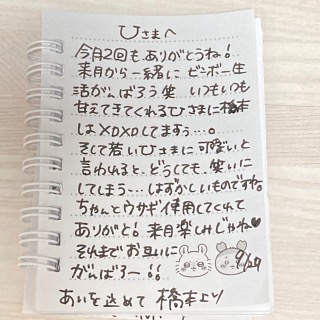 ひさまへ
今月2回もありがとうね!
来月から一緒にビーボー生
活がんばろう笑 いつもいつも
甘えてきてくれるひさまに橋本
はメロメロしてますぅ…。
そして若いひさまに可愛いと
言われると、どうしても笑いに
してしまう…はずかしいものですね。
ちゃんとウサギ使用してくれて
ありがと!来月楽しみじゃね♥
それまでお互いに
がんばろー!!
9/27
あいを込めて 橋本より